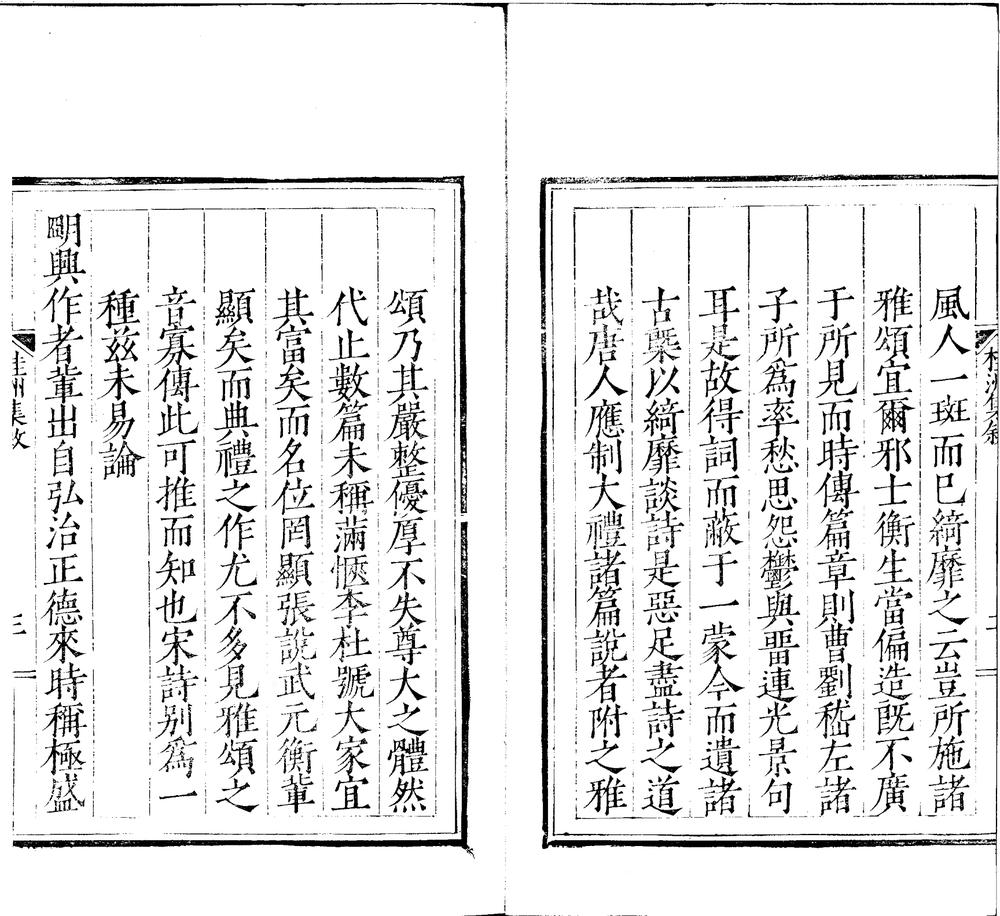 風人一斑而已綺靡之云豈所施諸
雅頌宜爾邪士衡生當偏造既不廣
于所見而時傳篇章則曹劉嵇左諸
子所為率愁思怨鬱與晋連光景句
耳是故得詞而蔽于一蒙今而遺諸
古槩以綺靡談詩是惡足盡詩之道
哉唐人應制大禮諸篇說者附之雅
頌乃其嚴整優厚不失尊大之體然
代止數篇未稱滿愜李杜號大家宜
其富矣而名位罔顯張說武元衡輩
顯矣而典禮之作尤不多見雅頌之
音寡傳此可推而知也宋詩別為一
種茲未易論
明興作者輩出自弘治正德來時稱極盛
桂洲集敘
二
桂洲集敘
三